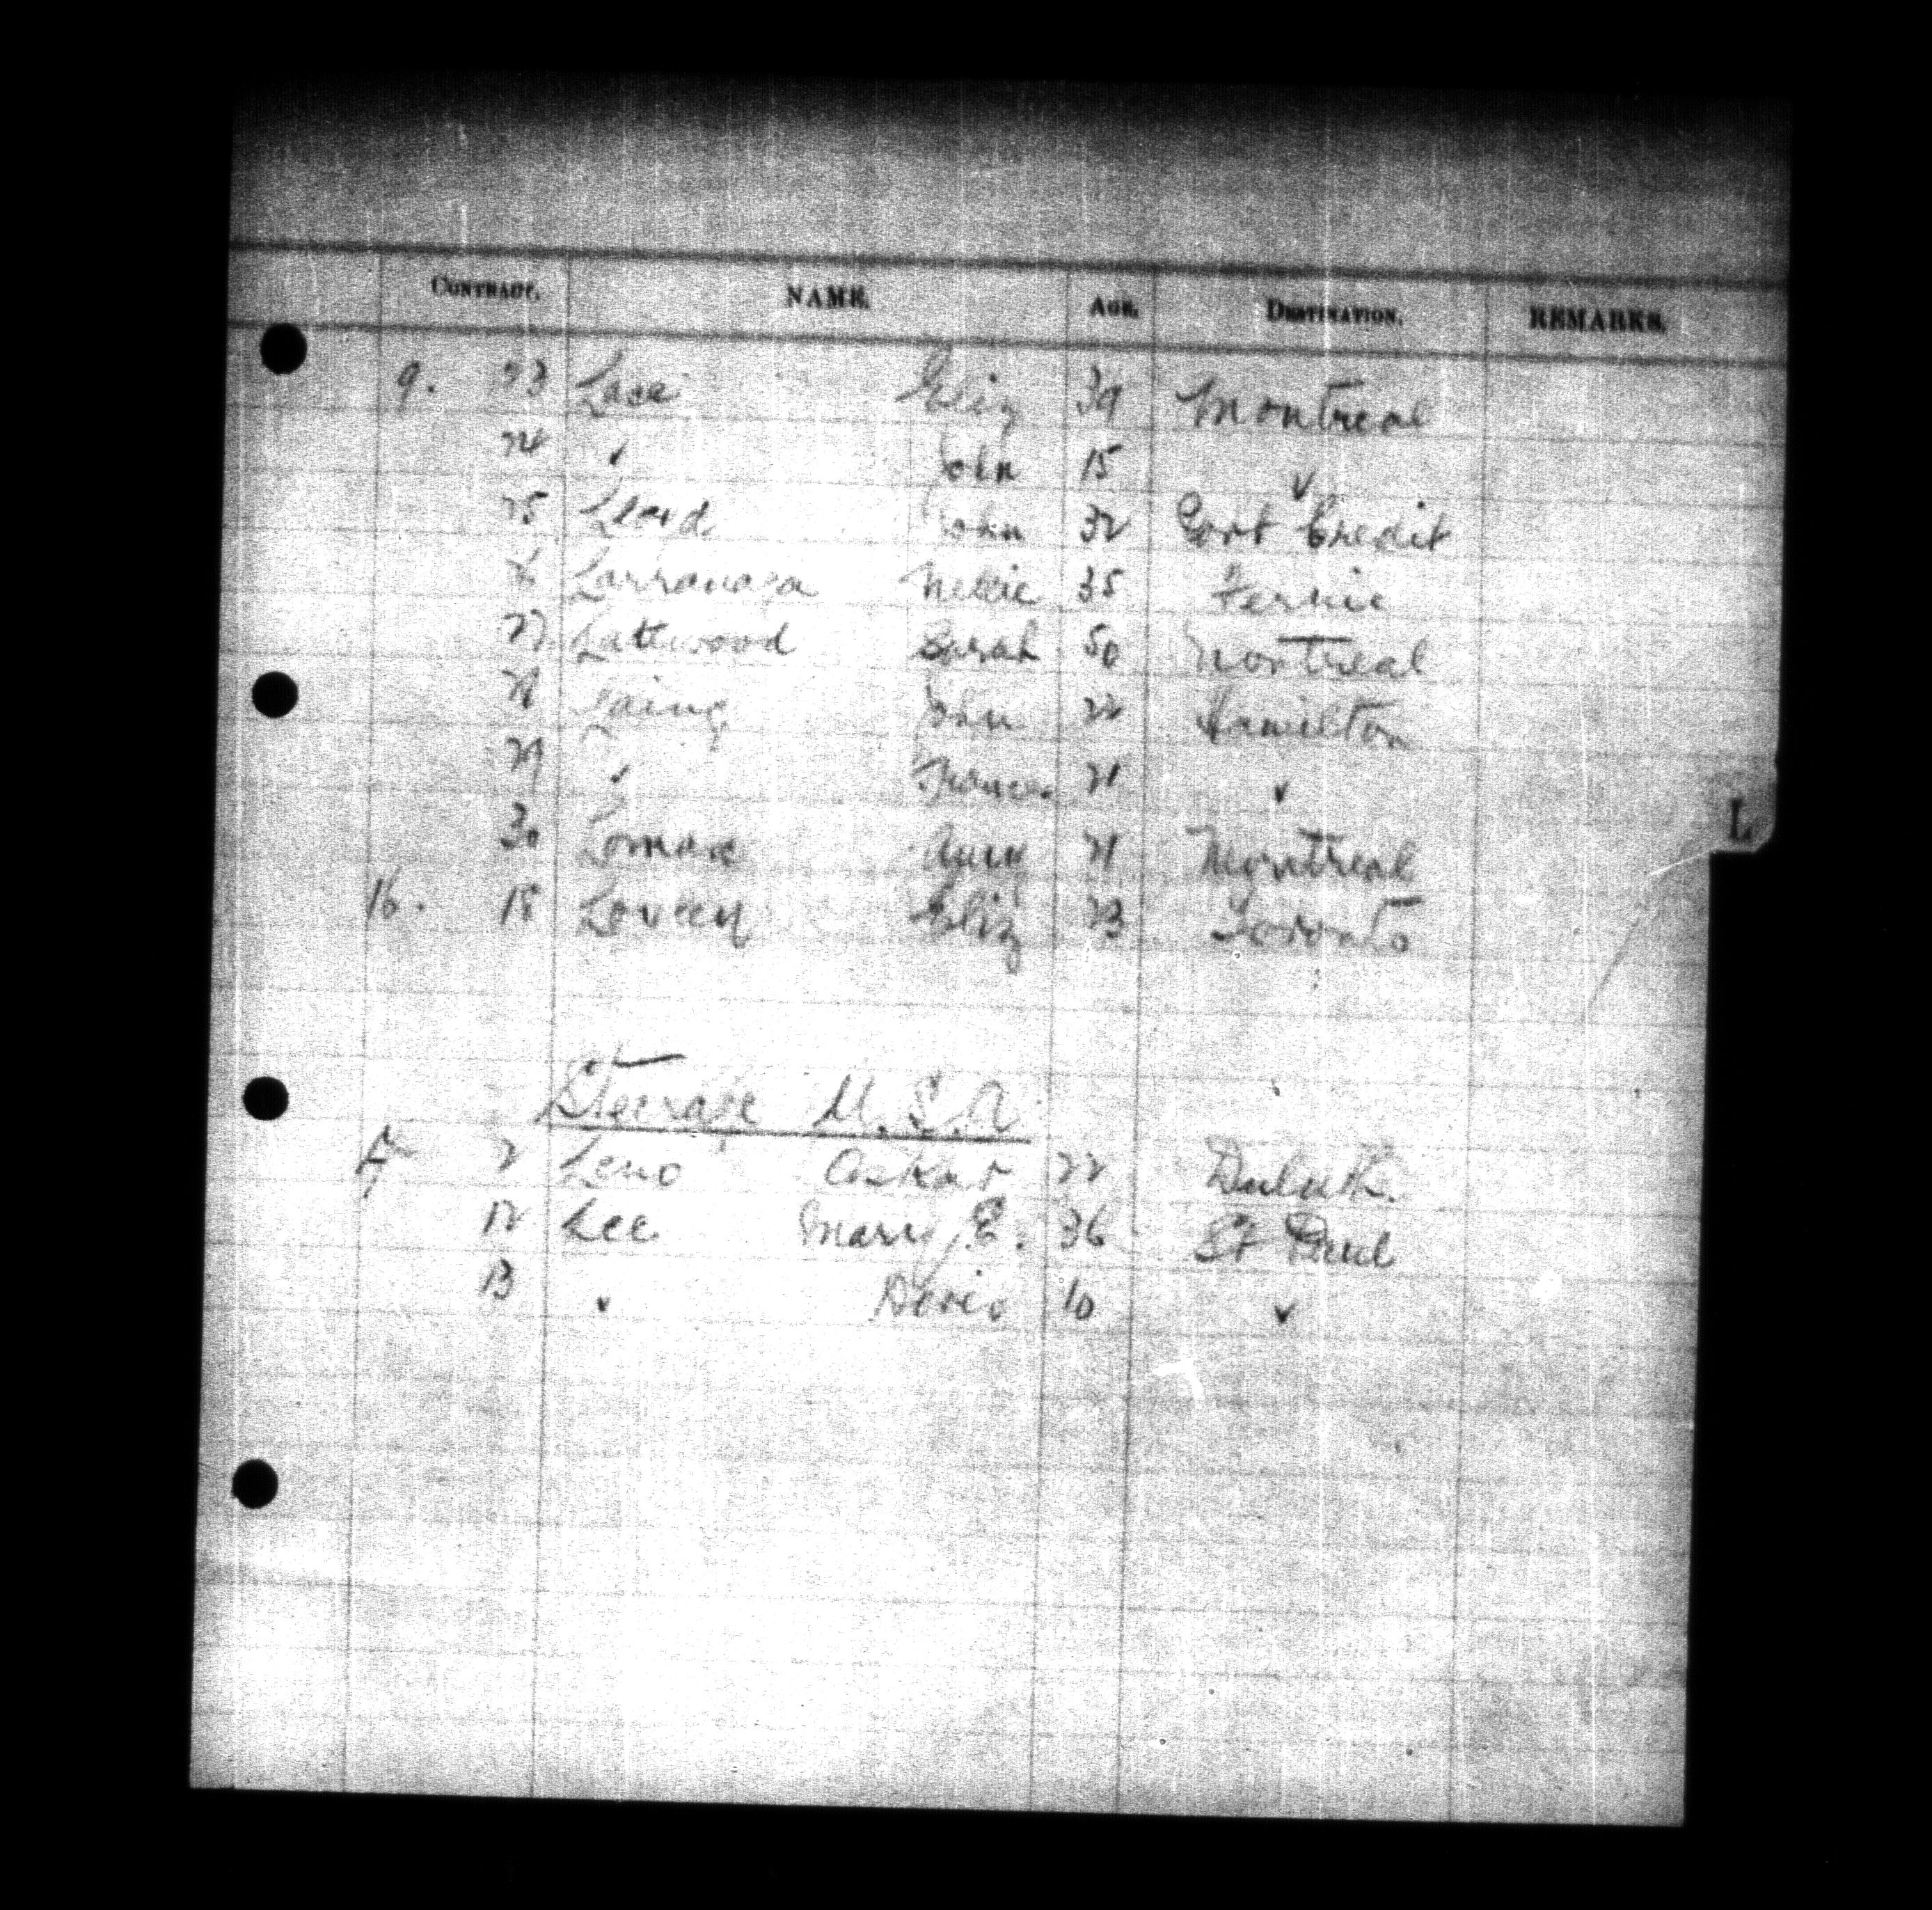 CONTRACT. NAME. AGE. DESTINATION. REMARKS.
9. 23 Lace Eliz 39 Montreal
24 " John 15 "
25 Lloyd John 32 Port Credit
26 Larranaga Nellie 35 Fernie
27 Lathwood Sarah 50 Montreal
28 Laing John 22 Hamilton
29 " Frances 21 "
30 Lomax Amy 21 Montreal
L
16. 18 Loveey Eliz 23 Toronto
Steerage U.S.A
2 Leno Oskar 22 Duluth.
12 Lee Mary E. 36 St Paul
13 " Doris 10 "